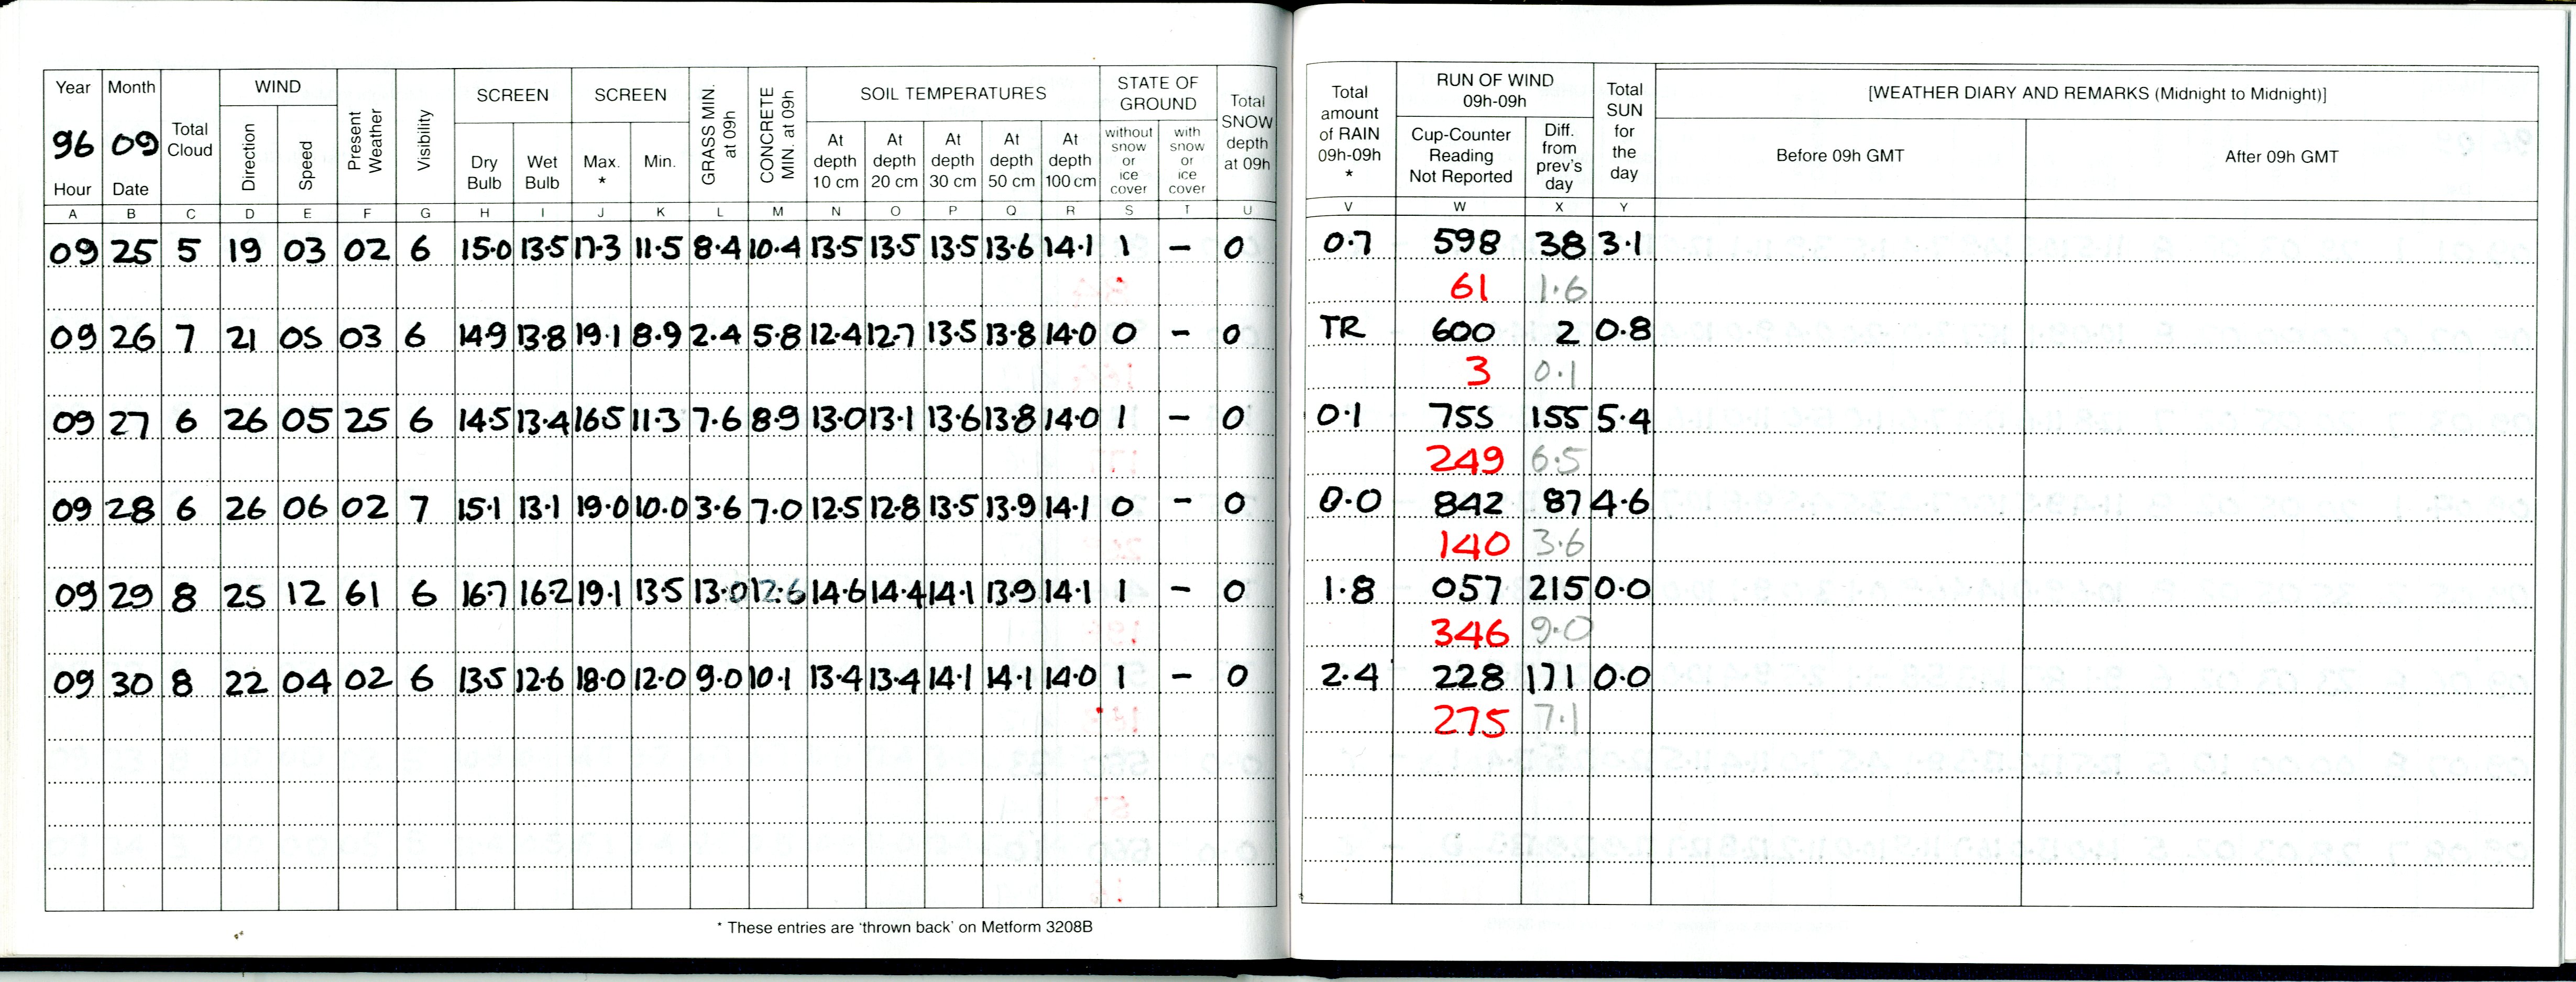 Year Month Total Cloud WIND Present Weather Visibility SCREEN SCREEN GRASS MIN. at 09h CONCRETE MIN. at 09h SOIL TEMPERATURES STATE OF GROUND Total SNOW depth at 09h Total amount of RAIN 09h-09h * RUN OF WIND 09h-09h Total SUN for the day [WEATHER DIARY AND REMARKS (Midnight to Midnight)]
96 09 Direction Speed Dry Bulb Wet Bulb Max. * Min. At depth 10 cm At depth 20 cm At depth 30 cm At depth 50 cm At depth 100 cm without snow or ice cover with snow or ice cover Cup-Counter Reading Not Reported Diff. from prev's day Before 09h GMT After 09h GMT
Hour Date
A B C D E F G H I J K L M N O P Q R S T U V W X Y
09 25 5 19 03 02 6 15.0 13.5 17.3 11.5 8.4 10.4 13.5 13.5 13.5 13.6 14.1 1 – 0 0.7 598 38 3.1
61 1.6
09 26 7 21 05 03 6 14.9 13.8 19.1 8.9 2.4 5.8 12.4 12.7 13.5 13.8 14.0 0 – 0 TR 600 2 0.8
3 0.1
09 27 6 26 05 25 6 14.5 13.4 16.5 11.3 7.6 8.9 13.0 13.1 13.6 13.8 14.0 1 – 0 0.1 755 155 5.4
249 6.5
09 28 6 26 06 02 7 15.1 13.1 19.0 10.0 3.6 7.0 12.5 12.8 13.5 13.9 14.1 0 – 0 0.0 842 87 4.6
140 3.6
09 29 8 25 12 61 6 16.7 16.2 19.1 13.5 13.0 12.6 14.6 14.4 14.1 13.9 14.1 1 – 0 1.8 057 215 0.0
346 9.0
09 30 8 22 04 02 6 13.5 12.6 18.0 12.0 9.0 10.1 13.4 13.4 14.1 14.1 14.0 1 – 0 2.4 228 171 0.0
275 7.1
* These entries are 'thrown back' on Metform 3208B